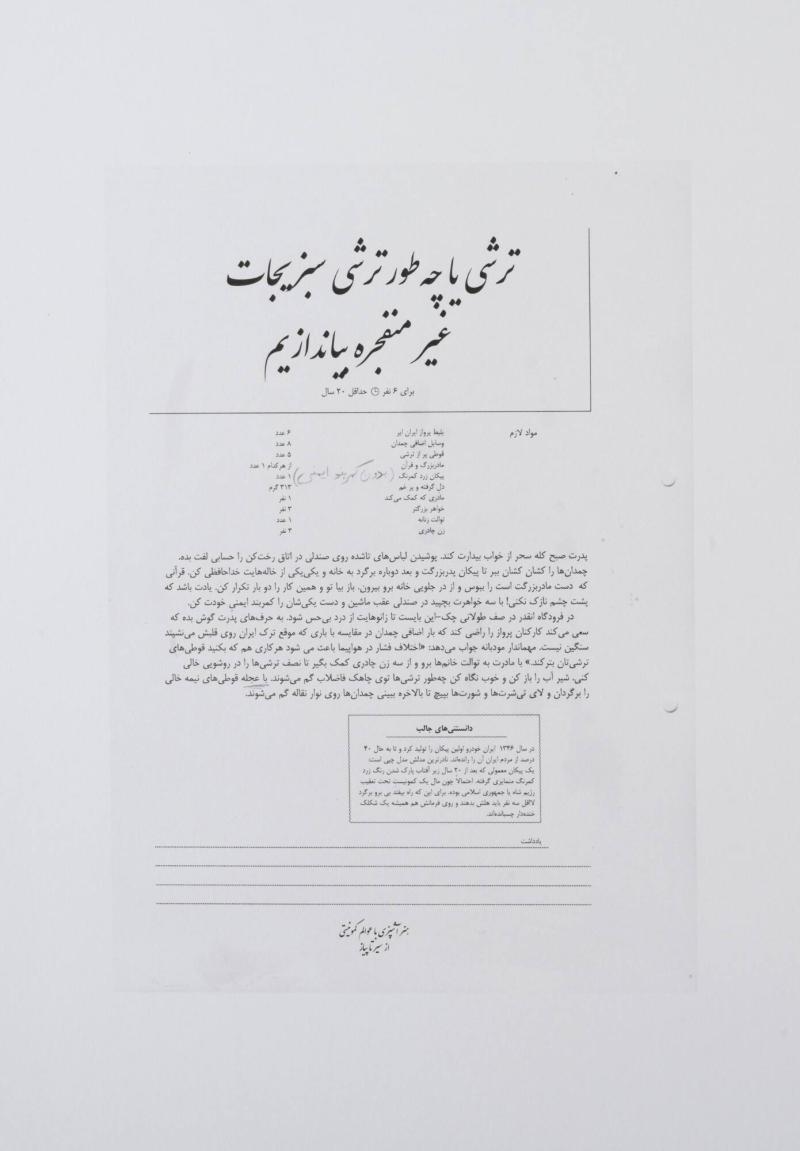 ترشی یا چه طور ترشی سبزیجات
غیر منفجره بیاندازیم
برای ۶ نفر حداقل ۲۰ سال
مواد لازم
بلیط پرواز ایران ایر ۶ عدد
وسایل اضافی چمدان ۸ عدد
قوطی پر از ترشی ۵ عدد
مادربزرگ و قرآن از هرکدام ۱ عدد
پیکان زرد کمرنگ (بدون کمربند ایمنی) ۱ عدد
دل گرفته و پر غم ۳۱۳ گرم
مادری که کمک می‌کند ۱ نفر
خواهر بزرگتر ۳ نفر
توالت زنانه ۱ عدد
زن چادری ۳ نفر
پدرت صبح کله سحر از خواب بیدارت کند. پوشیدن لباس‌های تاشده روی صندلی در اتاق رخت‌کن را حسابی لفت بده.
چمدان‌ها را کشان کشان ببر تا پیکان پدربزرگت و بعد دوباره برگرد به خانه و یکی‌یکی از خاله‌هایت خداحافظی کن. قرآنی
که دست مادربزرگت است را ببوس و از در جلویی خانه برو بیرون. باز بیا تو و همین کار را دو بار تکرار کن. یادت باشد که
پشت چشم نازک نکنی! با سه خواهرت بچپید در صندلی عقب ماشین و دست یکی‌شان را کمربند ایمنی خودت کن.
در فرودگاه انقدر در صف طولانی چک-این بایست تا زانوهایت از درد بی‌حس شود. به حرف‌های پدرت گوش بده که
سعی می‌کند کارکنان پرواز را راضی کند که بار اضافی چمدان در مقایسه با باری که موقع ترک ایران روی قلبش می‌نشیند
سنگین نیست. مهماندار مودبانه جواب می‌دهد: «اختلاف فشار در هواپیما باعث می شود هرکاری هم که بکنید قوطی‌های
ترشی‌تان بترکند.» با مادرت به توالت خانم‌ها برو و از سه زن چادری کمک بگیر تا نصف ترشی‌ها را در روشویی خالی
کنی. شیر آب را باز کن و خوب نگاه کن چه‌طور ترشی‌ها توی چاهک فاضلاب گم می‌شوند. با عجله قوطی‌های نیمه خالی
را برگردان و لای تی‌شرت‌ها و شورت‌ها بپیچ تا بالاخره ببینی چمدان‌ها روی نوار نقاله گم می‌شوند.
دانستنی‌های جالب
در سال ۱۳۴۶ ایران خودرو اولین پیکان را تولید کرد و تا به حال ۴۰
درصد از مردم ایران آن را رانده‌اند. نادرترین مدلش مدل چپی است:
یک پیکان معمولی که بعد از ۲۰ سال زیر آفتاب پارک شدن رنگ زرد
کمرنگ متمایزی گرفته. احتمالاً چون مال یک کمونیست تحت تعقیب
رژیم شاه یا جمهوری اسلامی بوده. برای این که راه بیفتد بی برو برگرد
لااقل سه نفر باید هلش بدهند و روی فرمانش هم همیشه یک شکلک
خنده‌دار چسبانده‌اند.
یادداشت
هنر آشپزی با عوالم کمونیستی
از سیر تا پیاز